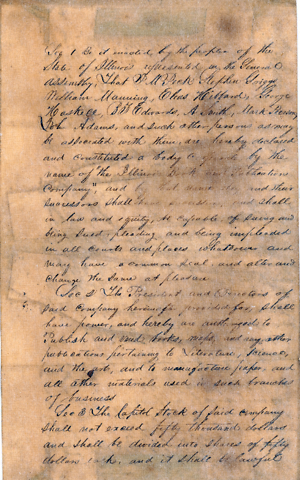 Sec 1 Be it enacted by the people of the
State of Illinois represented in the General
Assembly, That
William Manning,
Haskell, Edwards, A. Smith, Mark
John Adams, and such other persons as may
be associated with them, are hereby declared
and constituted a body by the
name of the Illinois and Publication
Company" and by that name and their
successors shall have succession, and shall
in law and equity, be capable of suing and
being sued - pleading and being impleaded
in all courts and places whatsoever and
may have a common seal, and alter and
change the same at pleasure
Sec 2 The President and Directors of
said company hereinafter provided for, shall
have power, and hereby are authorized to
Publish and vend, books, maps, and any other
publications pertaining to Literature, Science,
and the arts, and to manufacture paper, and
all other materials used in such branches
of business
Sec 3 The Capitol Stock of said company
shall not exceed fifty thousand dollars
and shall be divided into shares of fifty
dollars each, and it shall be lawful